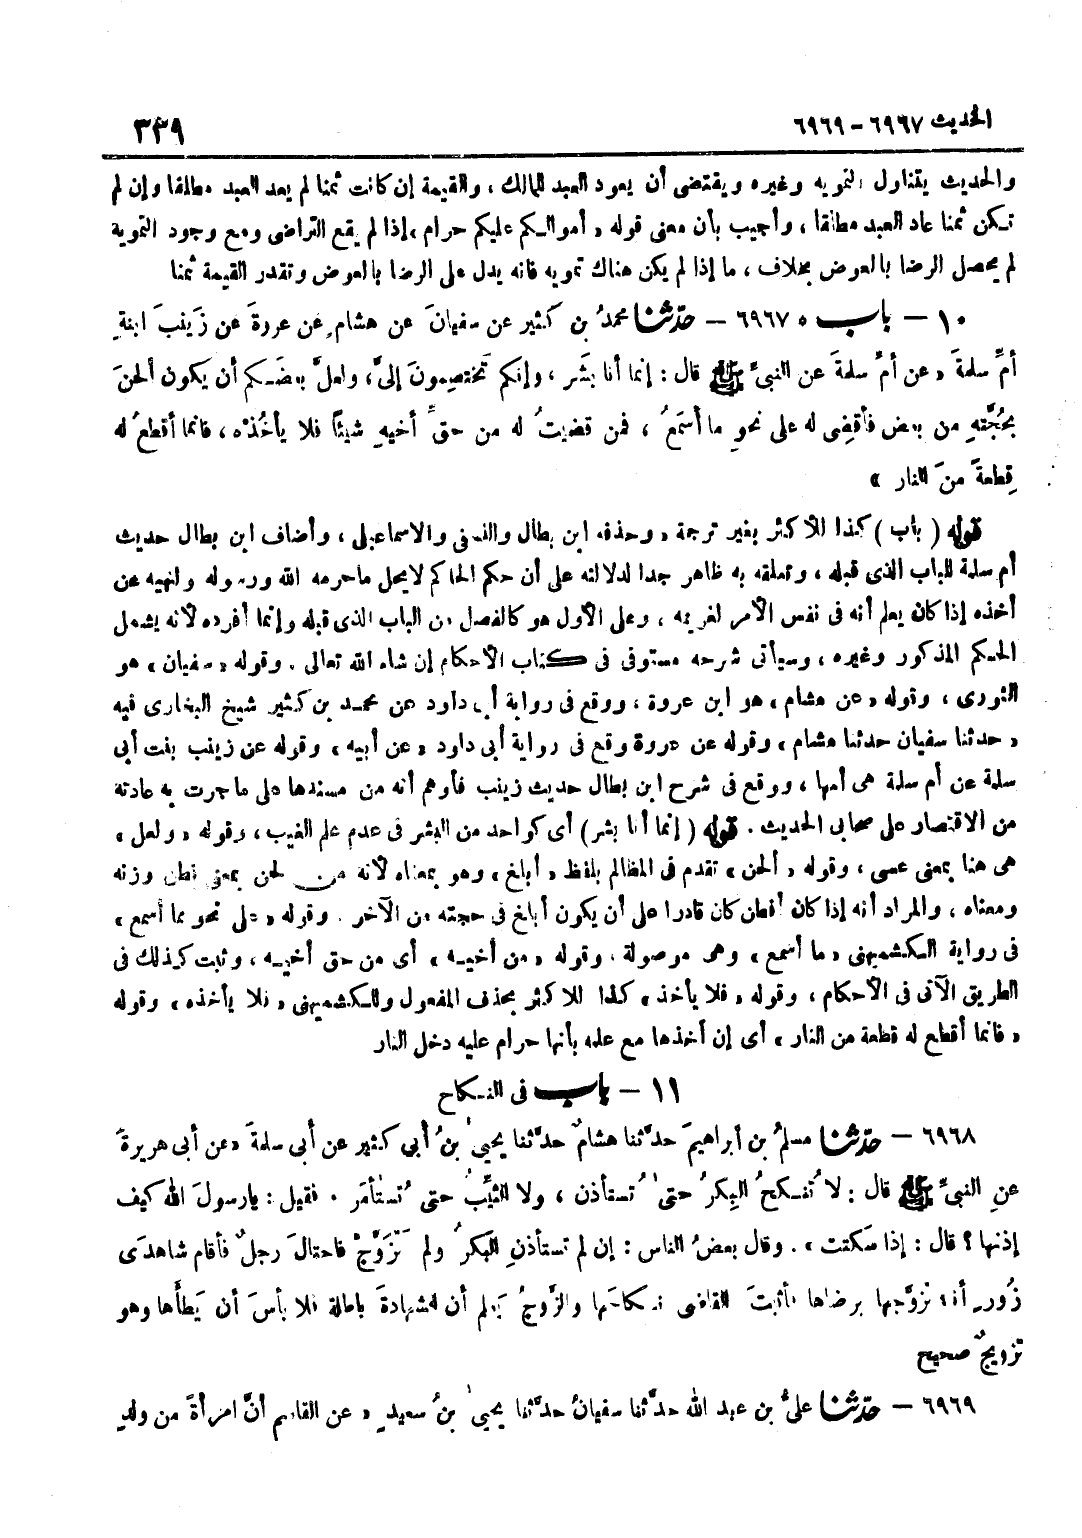 الحديث ٦٩٦٧ - ٦٩٦٩
٣٣٩
والحديث يتناول التمويه وغيره ويقتضى أن يعود العبد للمالك ، والقيمة إن كانت ثمنا لم يعد العبد مطلقا وإن لم
تكن ثمنا عاد العبد مطلقا ، وأجيب بأن معنى قوله « أموالكم عليكم حرام ، إذا لم يقع التراضى ومع وجود التمويه
لم يحصل الرضا بالعوض بخلاف ، ما إذا لم يكن هناك تمويه فانه يدل على الرضا بالعوض وتقدر القيمة ثمنا
١٠ - باب ٥ ٦٩٦٧ - حدّثنا محمدُ بن كثير عن سفيانَ عن هشامٍ عن عروةَ عن زَينبَ ابنةِ
أمِّ سلمةَ « عن أمِّ سلمةَ عن النبىِّ ﷺ قال : إنما أنا بشَر ، وإنكم تَختصِمونَ إلىَّ ، ولعلَّ بعضَكم أن يكون ألحنَ
بحُجَّتهِ من بعض فأقضِى له على نحوِ ما أسمَعُ ، فمن قضيتُ له من حقِّ أخيهِ شيئاً فلا يأخُذْه ، فانما أقطعُ له
قِطعةً منَ النار »
قوله ( باب ) كذا للأكثر بغير ترجمة ، وحذفه ابن بطال والنسفى والاسماعيلى ، وأضاف ابن بطال حديث
أم سلمة للباب الذى قبله ، وتعلقه به ظاهر جدا لدلالته على أن حكم الحاكم لا يحل ما حرمه الله ورسوله ولنهيه عن
أخذه إذا كان يعلم أنه فى نفس الأمر لغريمه ، وعلى الأول هو كالفصل من الباب الذى قبله وإنما أفرده لأنه يشمل
الحكم المذكور وغيره ، وسيأتى شرحه مستوفى فى كتاب الأحكام إن شاء الله تعالى . وقوله « سفيان » هو
الثورى ، وقوله « عن هشام ، هو ابن عروة ، ووقع فى رواية أبى داود عن محمد بن كثير شيخ البخارى فيه
« حدثنا سفيان حدثنا هشام ، وقوله عن عروة وقع فى رواية أبى داود « عن أبيه » وقوله عن زينب بنت أبى
سلمة عن أم سلمة هى أمها ، ووقع فى شرح ابن بطال حديث زينب فأوهم أنه من مسندها على ما جرت به عادته
من الاقتصار على صحابى الحديث . قوله ( إنما أنا بشر ) أى كواحد من البشر فى عدم علم الغيب ، وقوله « ولعل »
هى هنا بمعنى عسى ، وقوله « ألحن » تقدم فى المظالم بلفظ « أبلغ » وهو بمعناه لأنه من لحن بمعنى فطن وزنه
ومعناه ، والمراد أنه إذا كان أفطن كان قادرا على أن يكون أبلغ فى حجته من الآخر . وقوله « على نحو مما أسمع »
فى رواية الكشميهنى « ما أسمع » وهى موصولة ، وقوله « من أخيه » أى من حق أخيه ، وثبت كذلك فى
الطريق الآتى فى الأحكام ، وقوله « فلا يأخذ » كذا للاكثر بحذف المفعول وللكشميهنى « فلا يأخذه » وقوله
« فانما أقطع له قطعة من النار » أى إن أخذها مع علمه بأنها حرام عليه دخل النار
١١ - باب فى النكاح
٦٩٦٨ - حدّثنا مسلمُ بن أبراهيمَ حدَّثنا هشامٌ حدَّثنا يحيى بنُ أبى كثير عن أبى سلمةَ « عن أبى هريرةَ
عنِ النبىِّ ﷺ قال : لا تُنكحُ البِكرُ حتى تُستأذن ، ولا الثيِّبُ حتى تُستأمَر . فقيل : يا رسولَ الله كيف
إذنها ؟ قال : إذا سكتت » . وقال بعضُ الناس : إن لم تستأذنِ البكرُ ولم تَزوَّجْ فاحتالَ رجلٌ فأقام شاهدَى
زُورٍ أنه تزوَّجها برضاها فأثبتَ القاضى نكاحَها والزَّوجُ يَعلم أن الشهادةَ باطلة فلا بأسَ أن يَطأَها وهو
تزويجٌ صحيح
٦٩٦٩ - حدّثنا علىُّ بن عبد الله حدَّثنا سفيانُ حدَّثنا يحيى بنُ سعيد « عن القاسم أنَّ امرأةً من ولدِ